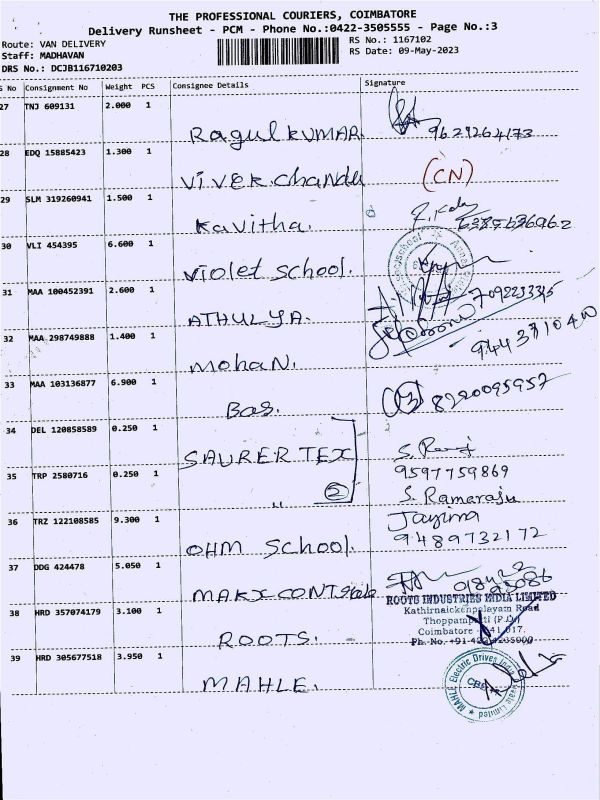 THE PROFESSIONAL COURIERS, COIMBATORE
Delivery Runsheet - PCM - Phone No.:0422-3505555 - Page No.:3
Route: VAN DELIVERY
RS No.: 1167102
Staff: MADHAVAN
RS Date: 09-May-2023
DRS No.: DCJB116710203
S No Consignment No Weight PCS Consignee Details Signature
27 TNJ 609131 2.000 1
Ragul KUMAR. 9629264173
28 EDQ 15885423 1.300 1
(CN)
29 SLM 319260941 1.500 1
Kavitha.
30 VLI 454395 6.600 1
Violet School.
31 MAA 100452391 2.600 1
ATHULYA.
32 MAA 298749888 1.400 1
Mohan.
33 MAA 103136877 6.900 1
8220095957
34 DEL 120858589 0.250 1
SAURER TEX
35 TRP 2580716 0.250 1
9597759869
② S. Ramaraju
36 TRZ 122108585 9.300 1
OHM School. 9489732172
37 DDG 424478 5.050 1
ROOTS INDUSTRIES INDIA LIMITED
Kathirnaickenpalayam Road
38 HRD 357074179 3.100 1
Coimbatore
ROOTS.
39 HRD 305677518 3.950 1
MAHLE.
MAHLE Electric Drives India Private Limited